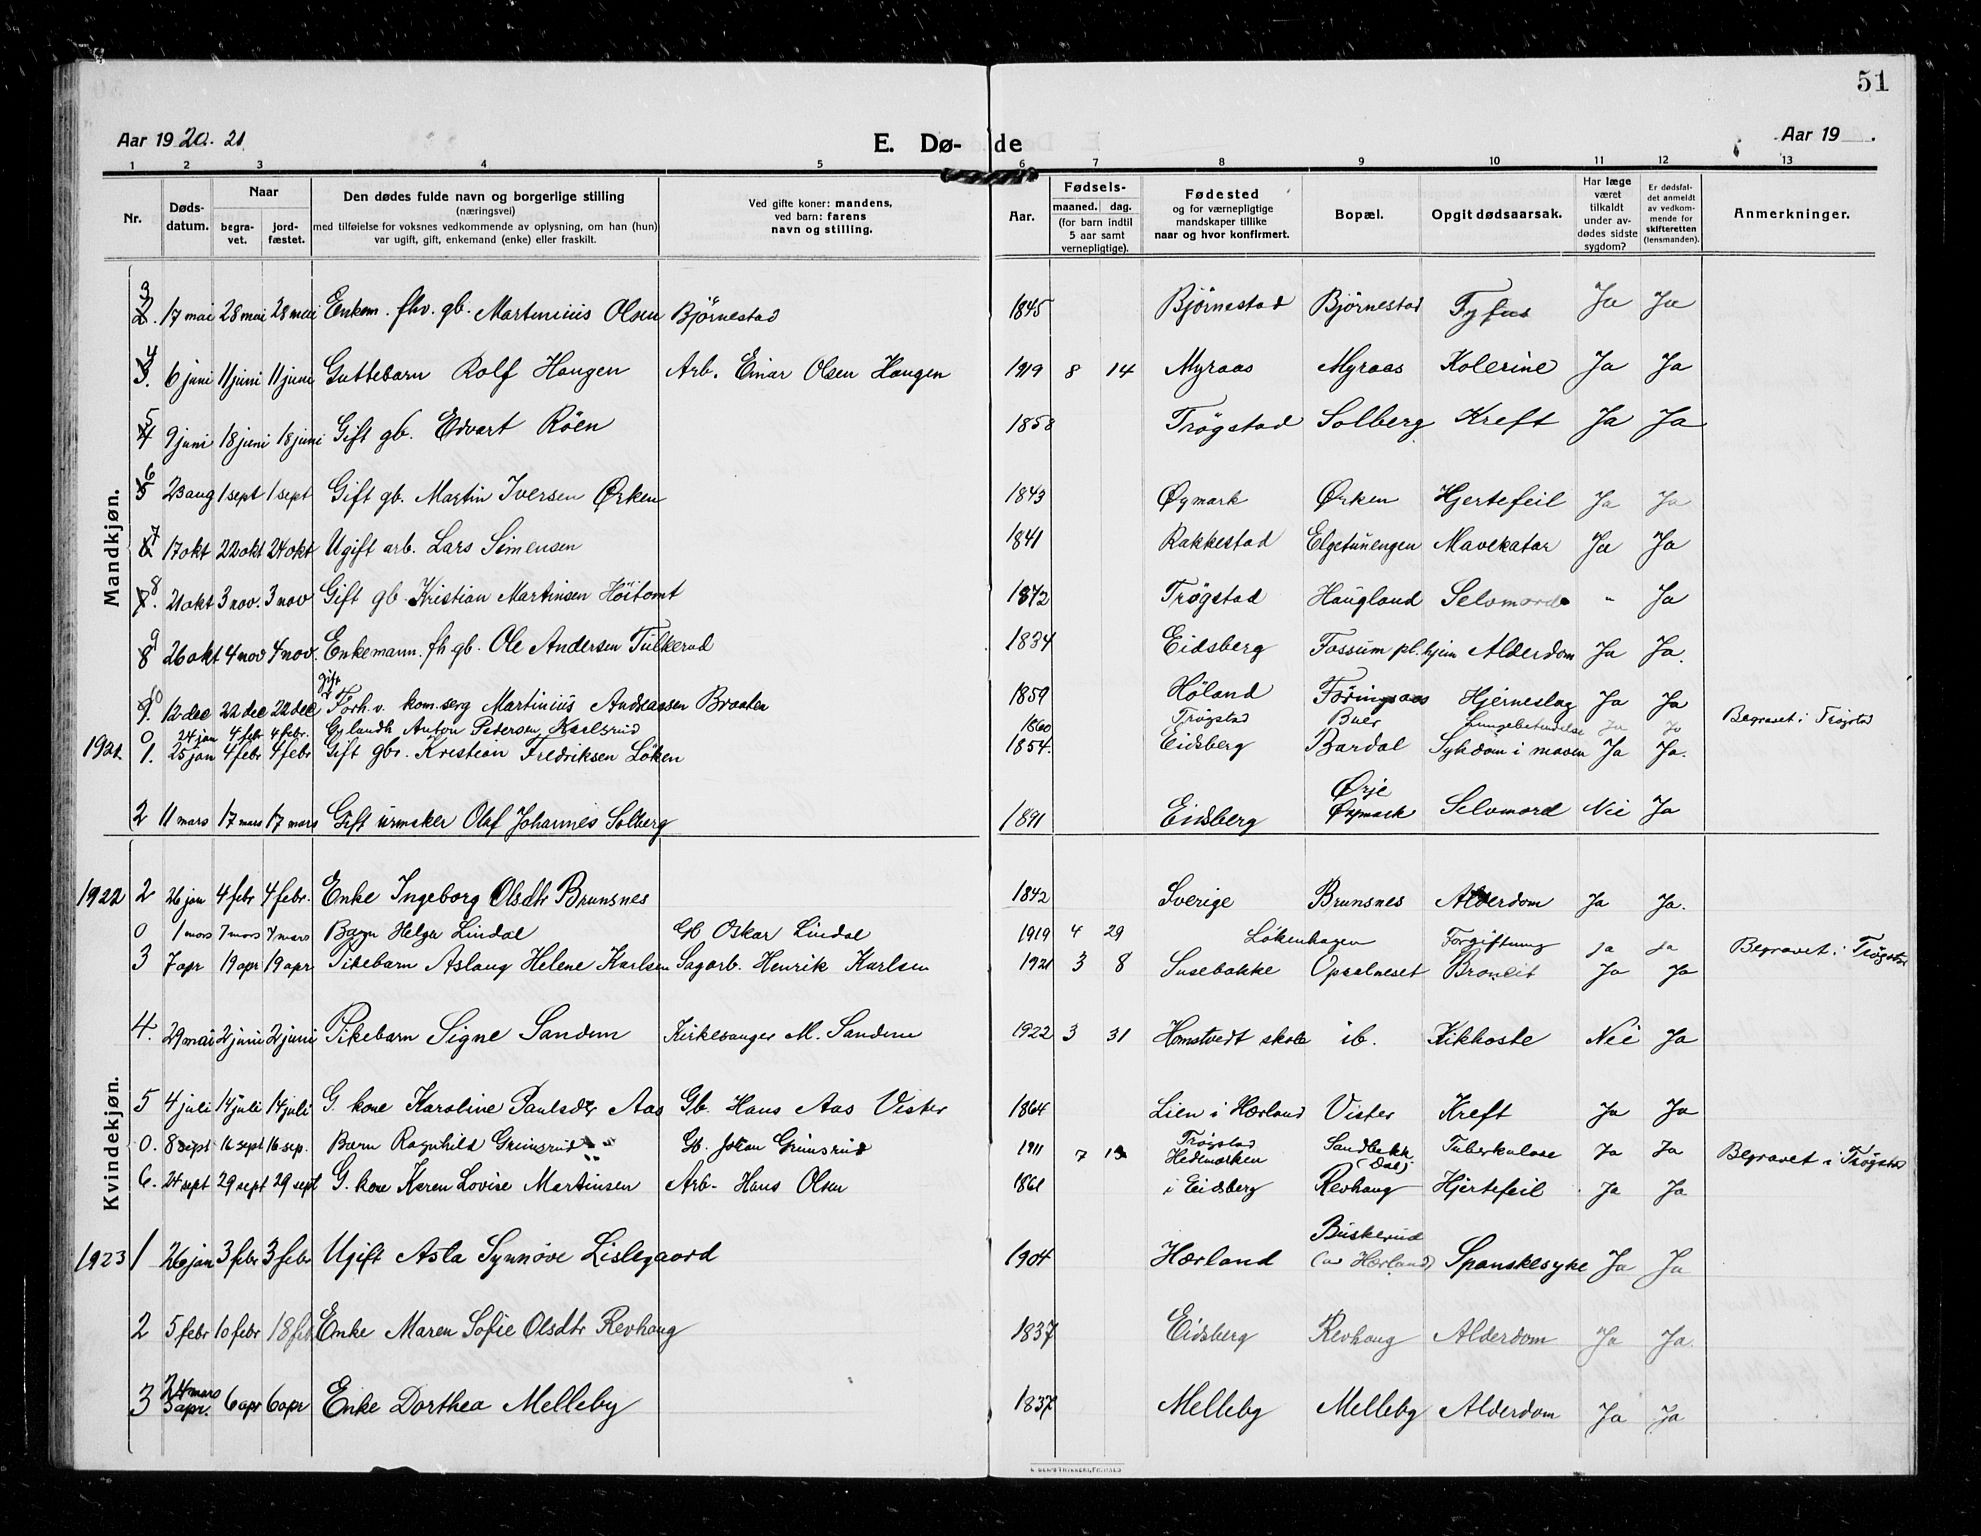 51
Aar 1920. 21.
E. Dø- de
Aar 19 .
1 2 3 4 5 6 7 8 9 10 11 12 13
Nr.
Døds-
datum.
Naar
begra-
vet.
jord-
fæstet.
Den dødes fulde navn og borgerlige stilling
(næringsvei)
med tilføielse for voksnes vedkommende av oplysning, om han (hun)
var ugift, gift, enkemand (enke) eller fraskilt.
Ved gifte koner: mandens,
ved barn: farens
navn og stilling.
Aar.
Fødsels-
maaned. dag.
(for barn indtil
5 aar samt
vernepligtige).
Fødested
og for værnepligtige
mandskaper tillike
naar og hvor konfirmert.
Bopæl.
Opgit dødsaarsak.
Har læge
været
tilkaldt
under av-
dødes sidste
sygdom?
Er dødsfal-
det anmeldt
av vedkom-
mende for
skifteretten
(lensmanden).
Anmerkninger.
Mandkjøn.
3 2. 17 mai 28 mai 28 mai Enkem. fhv. gb. Martinius Olsen Bjørnestad 1845 Bjørnestad Bjørnestad Tyfus Ja Ja
4 3. 6 juni 11 juni 11 juni Guttebarn Rolf Haugen Arb. Einar Olsen Haugen 1919 8 14 Myraas Myraas Kolerine Ja Ja
5 4 9 juni 18 juni 18 juni Gift gb. Edvart Röen 1858 Trøgstad Solberg Kreft Ja Ja
6 5 23 aug 1 sept 1 sept Gift gb. Martin Iversen Ørken 1843 Øymark Ørken Hjertefeil Ja Ja
7 6 17 okt 22 okt 24 okt Ugift arb. Lars Simensen 1841 Rakkestad Elgetunengen Mavekatar Ja Ja
8 7. 21 okt 3 nov. 3 nov Gift gb. Kristian Martinsen Höitomt 1842 Trøgstad Haugland Selvmord " Ja
9 8 26 okt 4 nov 4 nov. Enkemann. fh gb. Ole Andersen Tülkerud 1834 Eidsberg Fossum pl. hjem Alderdom Ja Ja.
gift
10 9. 12 dec 22 dec 22 dec Forh.v. kom.serg Martinius Andreassen Braaten 1859 Høland Hjerneslag Ja Ja
0 24 jan 4 febr 4 febr. Anton Petersen Karlsrud 1860 Trøgstad Buer Lungebetendelse Ja Ja Begravet i Trøgstad
1921. 1. 25 jan 4 febr 4 febr Gift gbr. Kristian Fredriksen Løken 1854. Eidsberg Bardal Sykdom i maven Ja Ja.
Ørje
2 11 mars 17 mars 17 mars Gift urmaker Olaf Johannes Solberg 1891 Eidsberg Øymark Selvmord Nei Ja
Kvindekjøn.
1922 2 26 jan 4 febr 4 febr. Enke Ingeborg Olsdtr Brunsnes 1842 Sverige Brunsnes Alderdom Ja Ja.
0 1 mars 7 mars 7 mars Barn Helga Lindal Gb Oskar Lindal 1919 4 29 Løkenhagen Forgiftning Ja Ja Begravet i Trøgstad
3 7 apr 19 apr 19 apr Pikebarn Aslaug Helene Karlsen Sagarb. Henrik Karlsen 1921 3 8 Susebakke Opsalneset Bronkit Ja Ja
4. 29 mai 2 juni 2 juni Pikebarn Signe Sandem Kirkesanger M. Sandem 1922 3 31 Homstvedt skole ib. Kikhoste Nei Ja
5 4 juli 14 juli 14 juli G. kone Karoline Paulsdtr Aas Gb. Hans Aas Vister 1864 Lien i Hærland Vister Kreft Ja Ja
0. 8 sept 16 sept 16 sep. Barn Ragnhild Grimsrud Gb. Johan Grimsrud 1911 7 13 Trøgstad Sandbekk Tuberkulose Ja Ja Begravet i Trøgstad
Hedemarken (Dal)
6. 24 sept 29 sept 29 sept G. kone Karen Lovise Martinsen Arb. Hans Olsen 1861 i Eidsberg Revhaug Hjertefeil Ja Ja
Buskerud
1923 1 26 jan 3 febr 3 febr Ugift Asta Synnøve Lislegaard 1904 Hærland (av Hærland) Spanskesyke Ja Ja
2 5 febr 10 febr 18 feb Enke Maren Sofie Olsdtr Revhaug 1837 Eidsberg Revhaug Alderdom Ja Ja.
24 mars
3 3 apr. 6 apr 6 apr Enke Dorthea Melleby 1837 Melleby Melleby Alderdom Ja Ja